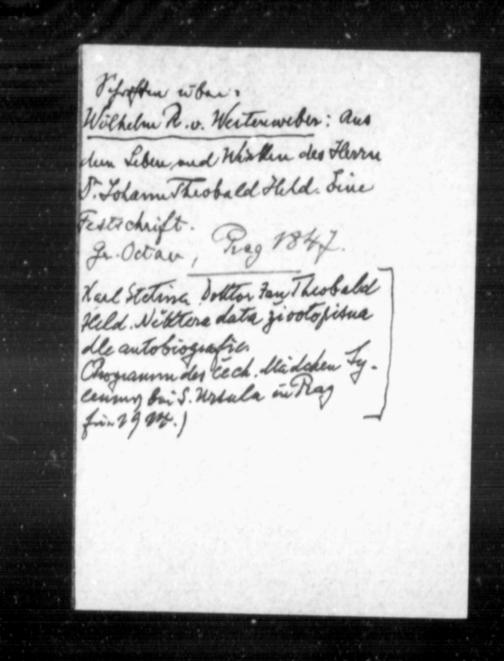 Schriften über:
Wilhelm R. v. Weitenweber: Aus
dem Leben und Wirken des Herrn
D. Johann Theobald Held. Eine
Festschrift.
Gr. Octav, Prag 1847.
Karl Stetina. Doktor Jan Theobald
Held. Některa data životopisna
dle autobiografie.
(Programm des čech. Mädchen Ly-
ceums bei S. Ursula in Prag
für 19